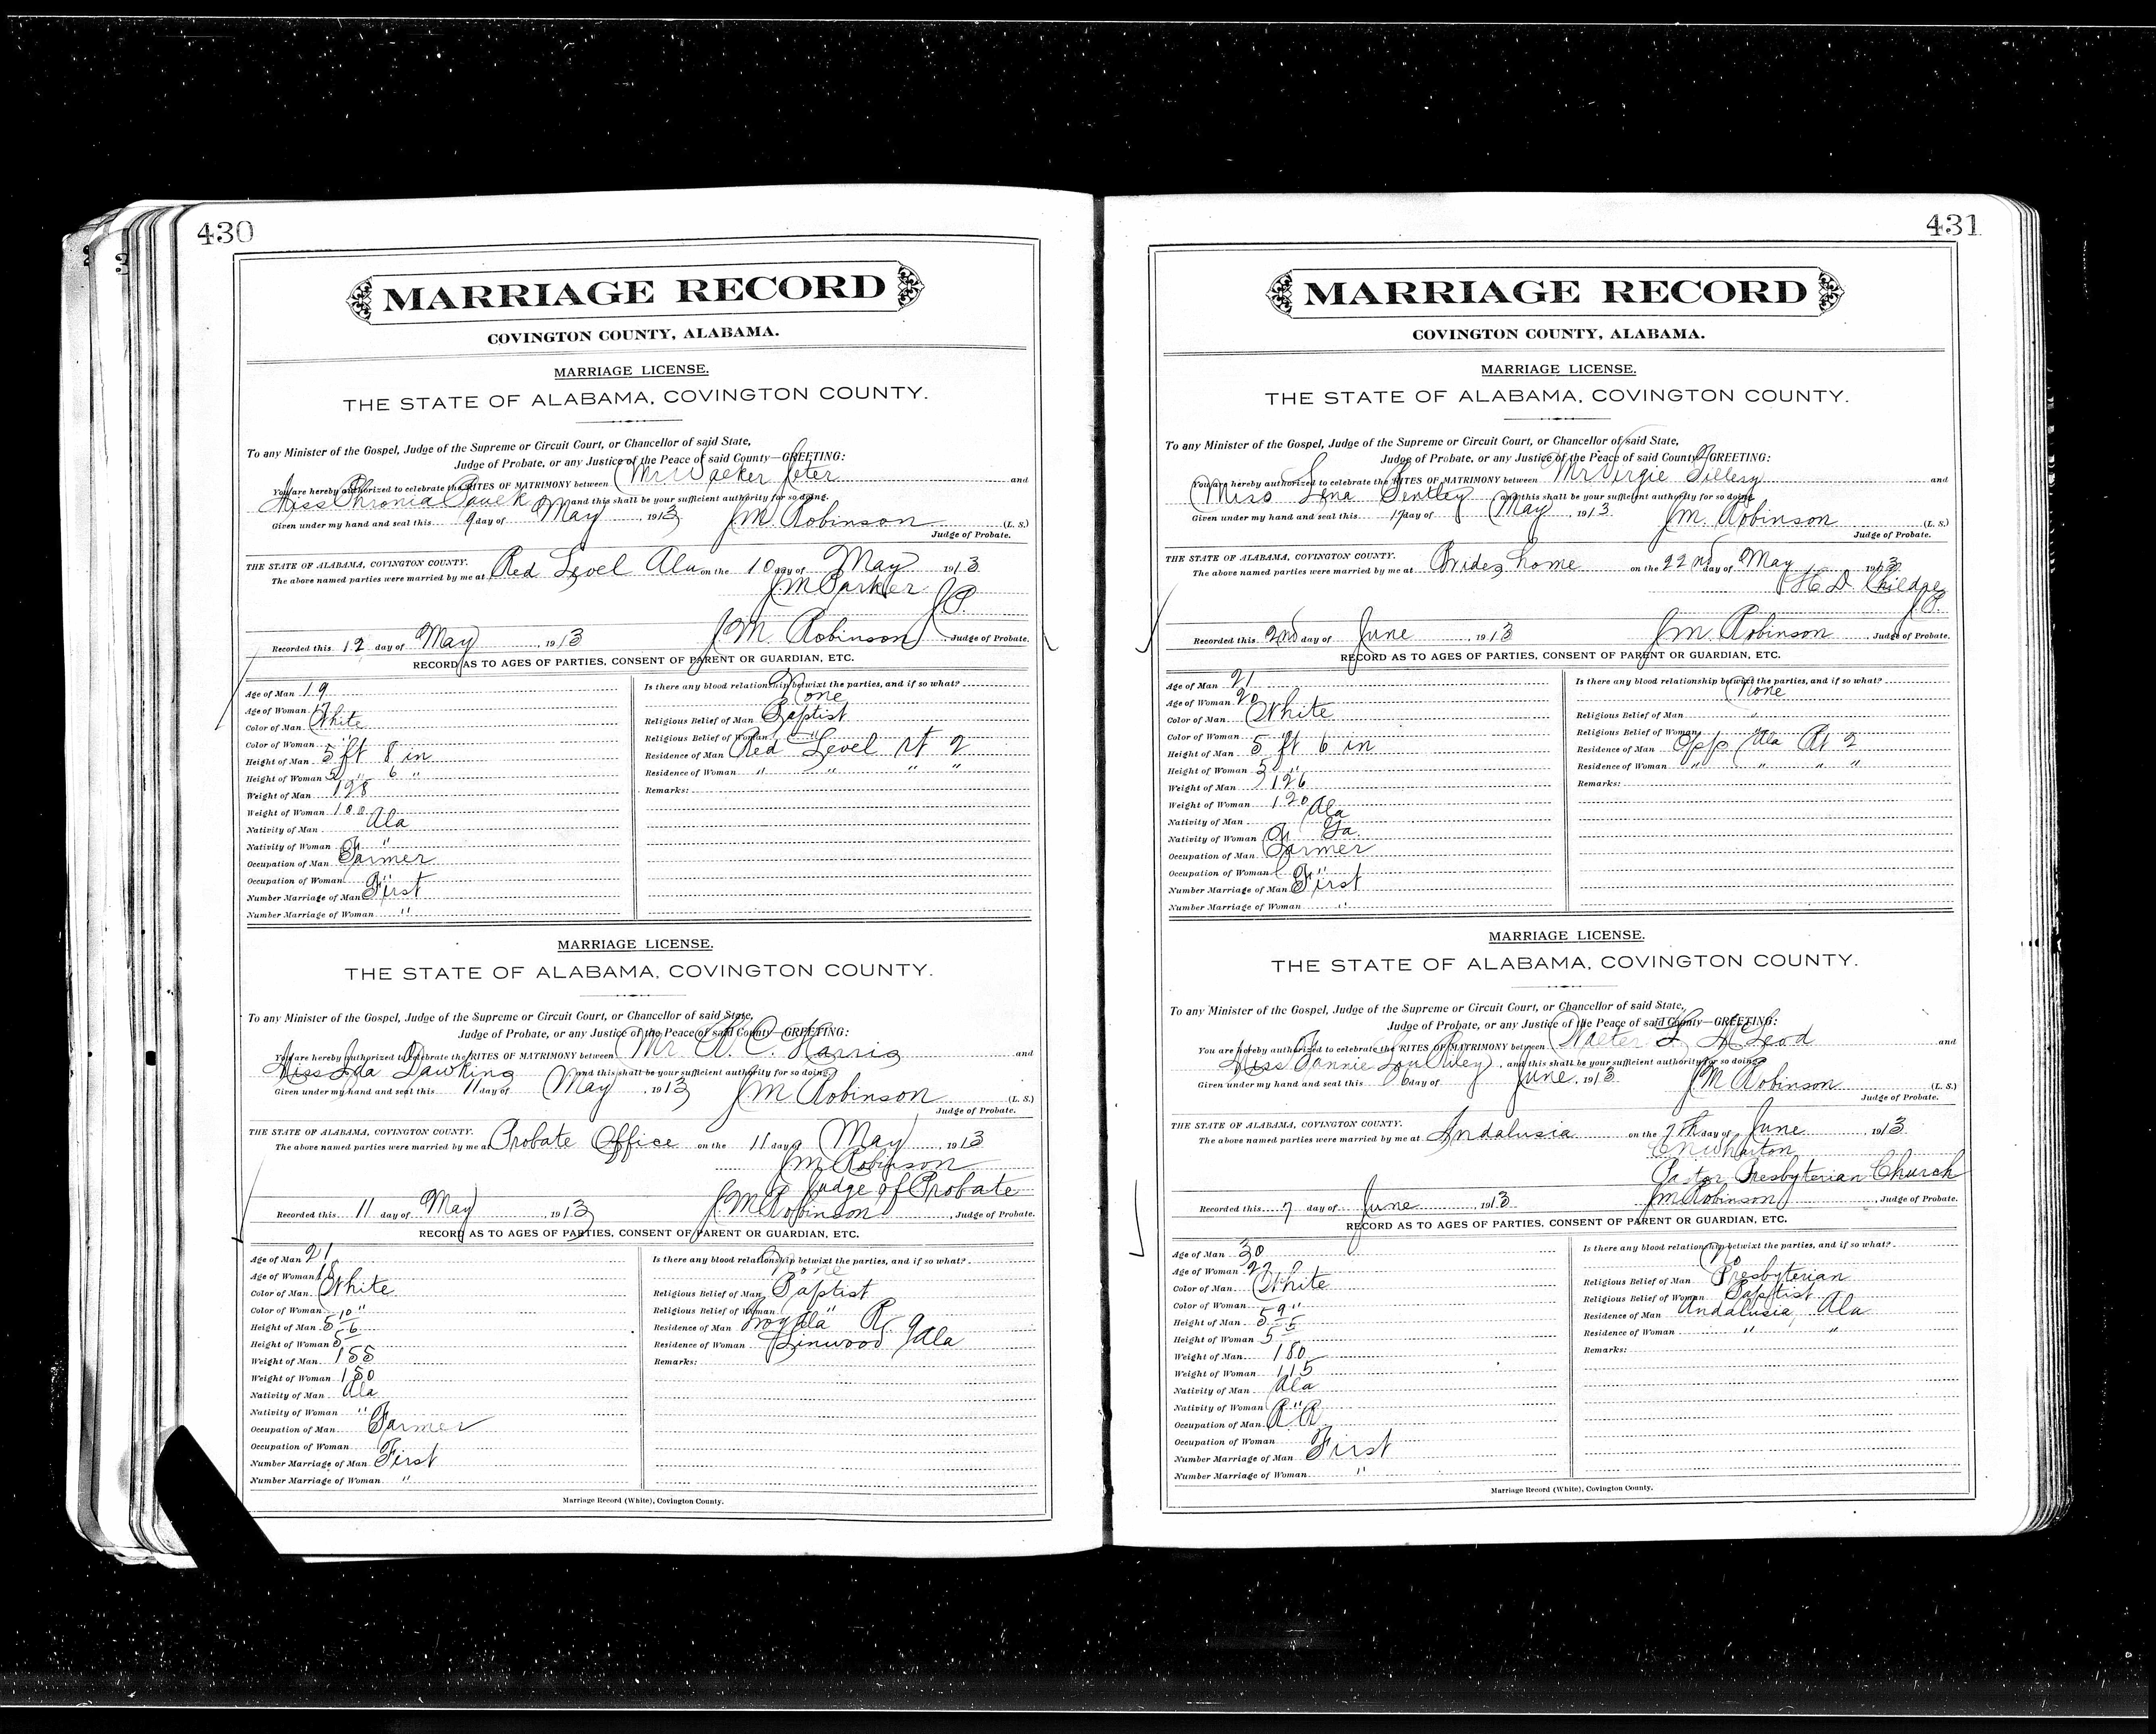 430
MARRIAGE RECORD
COVINGTON COUNTY, ALABAMA.
MARRIAGE LICENSE.
THE STATE OF ALABAMA, COVINGTON COUNTY.
To any Minister of the Gospel, Judge of the Supreme or Circuit Court, or Chancellor of said State,
Judge of Probate, or any Justice of the Peace of said County—GREETING:
You are hereby authorized to celebrate the RITES OF MATRIMONY between Mr Walker Jeter and
Miss Phronia and this shall be your sufficient authority for so doing.
Given under my hand and seal this 9 day of May, 1913 J.M. Robinson (L. S.)
Judge of Probate.
THE STATE OF ALABAMA, COVINGTON COUNTY.
The above named parties were married by me at Red Level Ala on the 10 day of May 1913
J.M Parker
J.P.
Recorded this 12 day of May, 1913 J.M. Robinson, Judge of Probate.
RECORD AS TO AGES OF PARTIES, CONSENT OF PARENT OR GUARDIAN, ETC.
Age of Man 19
Age of Woman 17
Color of Man White
Color of Woman "
Height of Man 5 ft 8 in
Height of Woman 5 " 6 "
Weight of Man 128
Weight of Woman 100
Nativity of Man Ala
Nativity of Woman "
Occupation of Man Farmer
Occupation of Woman "
Number Marriage of Man First
Number Marriage of Woman "
Is there any blood relationship betwixt the parties, and if so what?
None
Religious Belief of Man Baptist
Religious Belief of Woman "
Residence of Man Red Level Rt 2
Residence of Woman " " " "
Remarks:
MARRIAGE LICENSE.
THE STATE OF ALABAMA, COVINGTON COUNTY.
To any Minister of the Gospel, Judge of the Supreme or Circuit Court, or Chancellor of said State,
Judge of Probate, or any Justice of the Peace of said County—GREETING:
You are hereby authorized to celebrate the RITES OF MATRIMONY between Mr A. C. Harris and
Miss Ida Dawkins and this shall be your sufficient authority for so doing.
Given under my hand and seal this 11 day of May, 1913 J.M Robinson (L. S.)
Judge of Probate.
THE STATE OF ALABAMA, COVINGTON COUNTY.
The above named parties were married by me at Probate Office on the 11 day of May, 1913
J.M. Robinson
Judge of Probate
Recorded this 11 day of May, 1913 J.M. Robinson, Judge of Probate.
RECORD AS TO AGES OF PARTIES, CONSENT OF PARENT OR GUARDIAN, ETC.
Age of Man 21
Age of Woman 18
Color of Man White
Color of Woman "
Height of Man 5 10
Height of Woman 5 6
Weight of Man 155
Weight of Woman 150
Nativity of Man Ala
Nativity of Woman "
Occupation of Man Farmer
Occupation of Woman
Number Marriage of Man First
Number Marriage of Woman "
Is there any blood relationship betwixt the parties, and if so what?
None
Religious Belief of Man Baptist
Religious Belief of Woman "
Residence of Man Troy Ala R.
Residence of Woman Linwood Ala
Remarks:
Marriage Record (White), Covington County.
431
MARRIAGE RECORD
COVINGTON COUNTY, ALABAMA.
MARRIAGE LICENSE.
THE STATE OF ALABAMA, COVINGTON COUNTY.
To any Minister of the Gospel, Judge of the Supreme or Circuit Court, or Chancellor of said State,
Judge of Probate, or any Justice of the Peace of said County—GREETING:
You are hereby authorized to celebrate the RITES OF MATRIMONY between Mr Virgie Tillery and
Miss Lena Bentley and this shall be your sufficient authority for so doing
Given under my hand and seal this 17 day of May, 1913. J.M. Robinson (L. S.)
Judge of Probate.
THE STATE OF ALABAMA, COVINGTON COUNTY.
The above named parties were married by me at Brides home on the 22nd day of May 1913
H. D. Childre
J.P.
Recorded this 2nd day of June, 1913 J.M. Robinson, Judge of Probate.
RECORD AS TO AGES OF PARTIES, CONSENT OF PARENT OR GUARDIAN, ETC.
Age of Man 21
Age of Woman 20
Color of Man White
Color of Woman "
Height of Man 5 ft 6 in
Height of Woman 5 "
Weight of Man 126
Weight of Woman 120
Nativity of Man Ala
Nativity of Woman Ga.
Occupation of Man Farmer
Occupation of Woman "
Number Marriage of Man First
Number Marriage of Woman "
Is there any blood relationship betwixt the parties, and if so what?
None
Religious Belief of Man "
Religious Belief of Woman
Residence of Man Opp Ala Rt 2
Residence of Woman " " " "
Remarks:
MARRIAGE LICENSE.
THE STATE OF ALABAMA, COVINGTON COUNTY.
To any Minister of the Gospel, Judge of the Supreme or Circuit Court, or Chancellor of said State,
Judge of Probate, or any Justice of the Peace of said County—GREETING:
You are hereby authorized to celebrate the RITES OF MATRIMONY between Walter L McLeod and
Miss Fannie Lou Riley, and this shall be your sufficient authority for so doing
Given under my hand and seal this 6 day of June, 1913. J.M Robinson (L. S.)
Judge of Probate.
THE STATE OF ALABAMA, COVINGTON COUNTY.
The above named parties were married by me at Andalusia on the 7th day of June, 1913.
Wharton
Pastor Presbyterian Church
Recorded this 7 day of June, 1913 J.M. Robinson, Judge of Probate.
RECORD AS TO AGES OF PARTIES, CONSENT OF PARENT OR GUARDIAN, ETC.
Age of Man 30
Age of Woman 22
Color of Man White
Color of Woman "
Height of Man 5 9
Height of Woman 5 5
Weight of Man 180
Weight of Woman 115
Nativity of Man Ala
Nativity of Woman "
Occupation of Man R R
Occupation of Woman
Number Marriage of Man First
Number Marriage of Woman "
Is there any blood relationship betwixt the parties, and if so what?
No
Religious Belief of Man Presbyterian
Religious Belief of Woman Baptist
Residence of Man Andalusia, Ala
Residence of Woman " "
Remarks:
Marriage Record (White), Covington County.